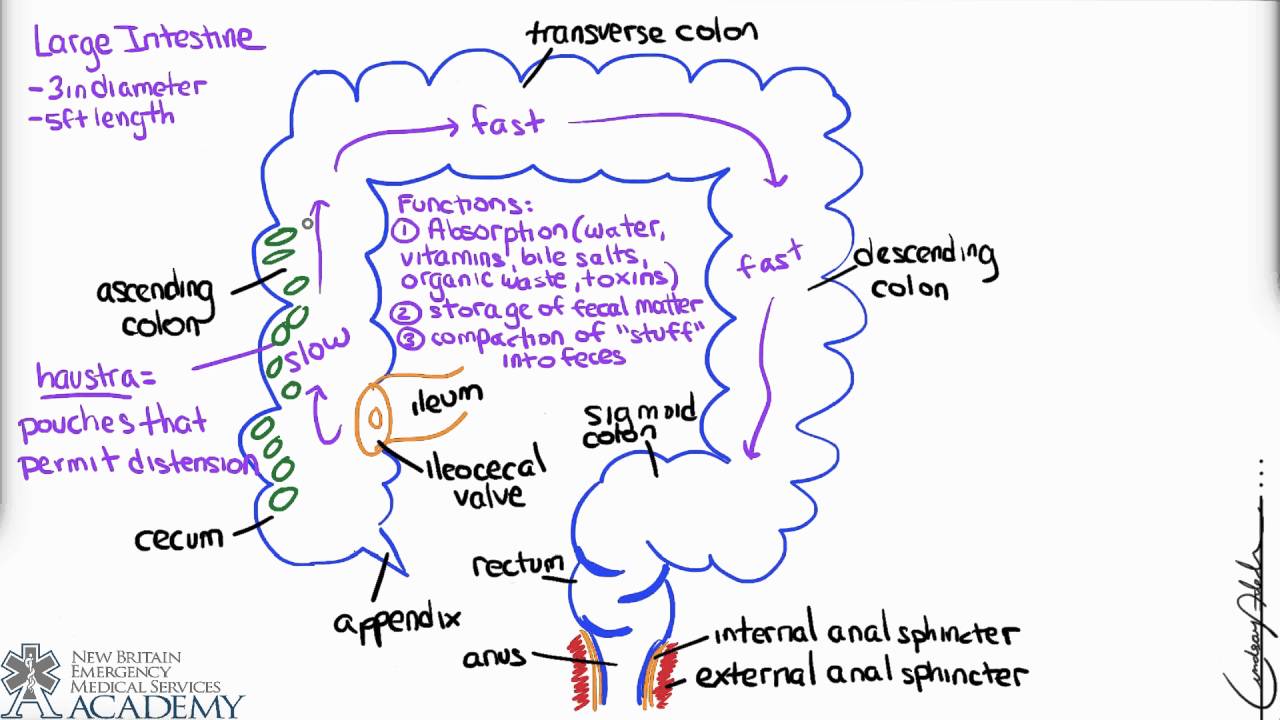 Large Intestine
-3in diameter
-5ft length
transverse colon
fast
Functions:
① Absorption (water,
vitamins, bile salts,
organic waste, toxins)
② storage of fecal matter
③ compaction of "stuff"
into feces
fast
descending
colon
ascending
colon
slow
haustra=
pouches that
permit distension
ileum
ileocecal
valve
sigmoid
colon
cecum
appendix
rectum
anus
internal anal sphincter
external anal sphincter
NEW BRITAIN
EMERGENCY
MEDICAL SERVICES
ACADEMY